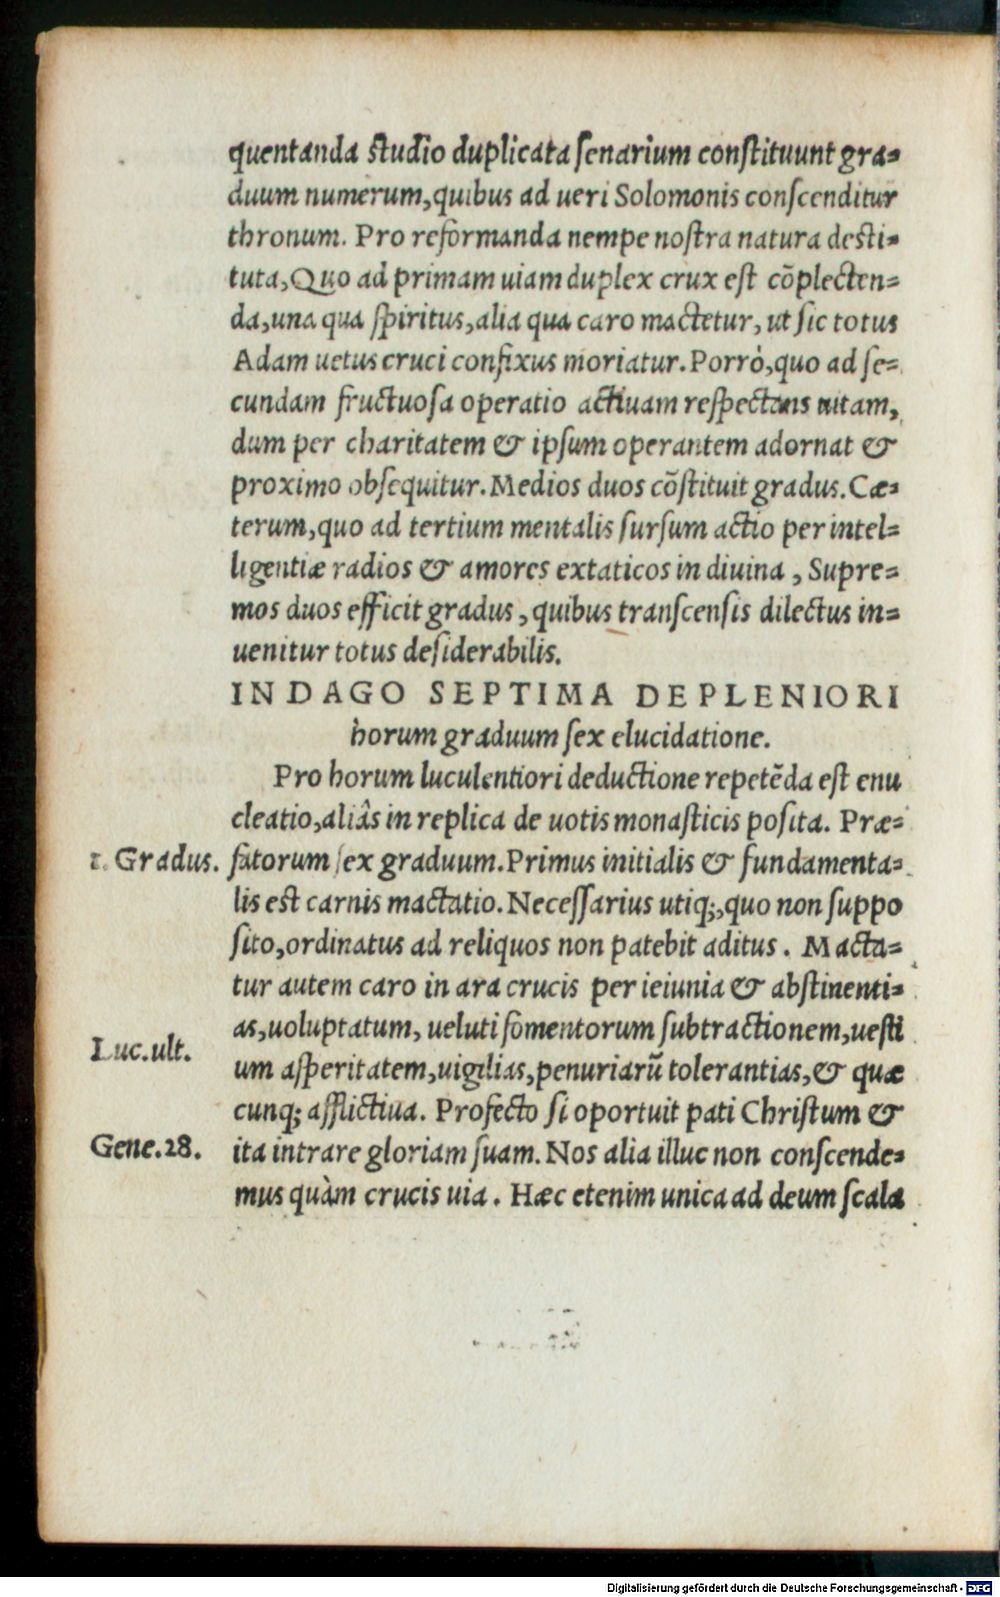 quentanda studio duplicata senarium constituunt gra=
duum numerum,quibus ad ueri Solomonis conscenditur
thronum. Pro reformanda nempe nostra natura desti=
tuta,Quo ad primam uiam duplex crux est cõplecten=
da,una qua spiritus,alia qua caro mactetur, ut sic totus
Adam uetus cruci confixus moriatur. Porrò,quo ad se=
cundam fructuosa operatio actiuam respectans uitam,
dum per charitatem & ipsum operantem adornat &
proximo obsequitur. Medios duos cõstituit gradus. Cæ=
terum,quo ad tertium mentalis sursum actio per intel=
ligentiæ radios & amores extaticos in diuina , Supre=
mos duos efficit gradus , quibus transcensis dilectus in=
uenitur totus desiderabilis.
INDAGO SEPTIMA DE PLENIORI
horum graduum sex elucidatione.
Pro horum luculentiori deductione repetẽda est enu
cleatio,aliâs in replica de uotis monasticis posita. Præ=
1. Gradus. fatorum sex graduum. Primus initialis & fundamenta=
lis est carnis mactatio. Necessarius utiq;,quo non suppo
sito,ordinatus ad reliquos non patebit aditus . Macta=
tur autem caro in ara crucis per ieiunia & abstinenti=
as,uoluptatum, ueluti fomentorum subtractionem,uesti
Luc.ult.
um asperitatem,uigilias,penuriarũ tolerantias,& quæ
cunq; afflictiua. Profecto si oportuit pati Christum &
Gene.28. ita intrare gloriam suam. Nos alia illuc non conscende=
mus quàm crucis uia . Hæc etenim unica ad deum scala
Digitalisierung gefördert durch die Deutsche Forschungsgemeinschaft - DFG